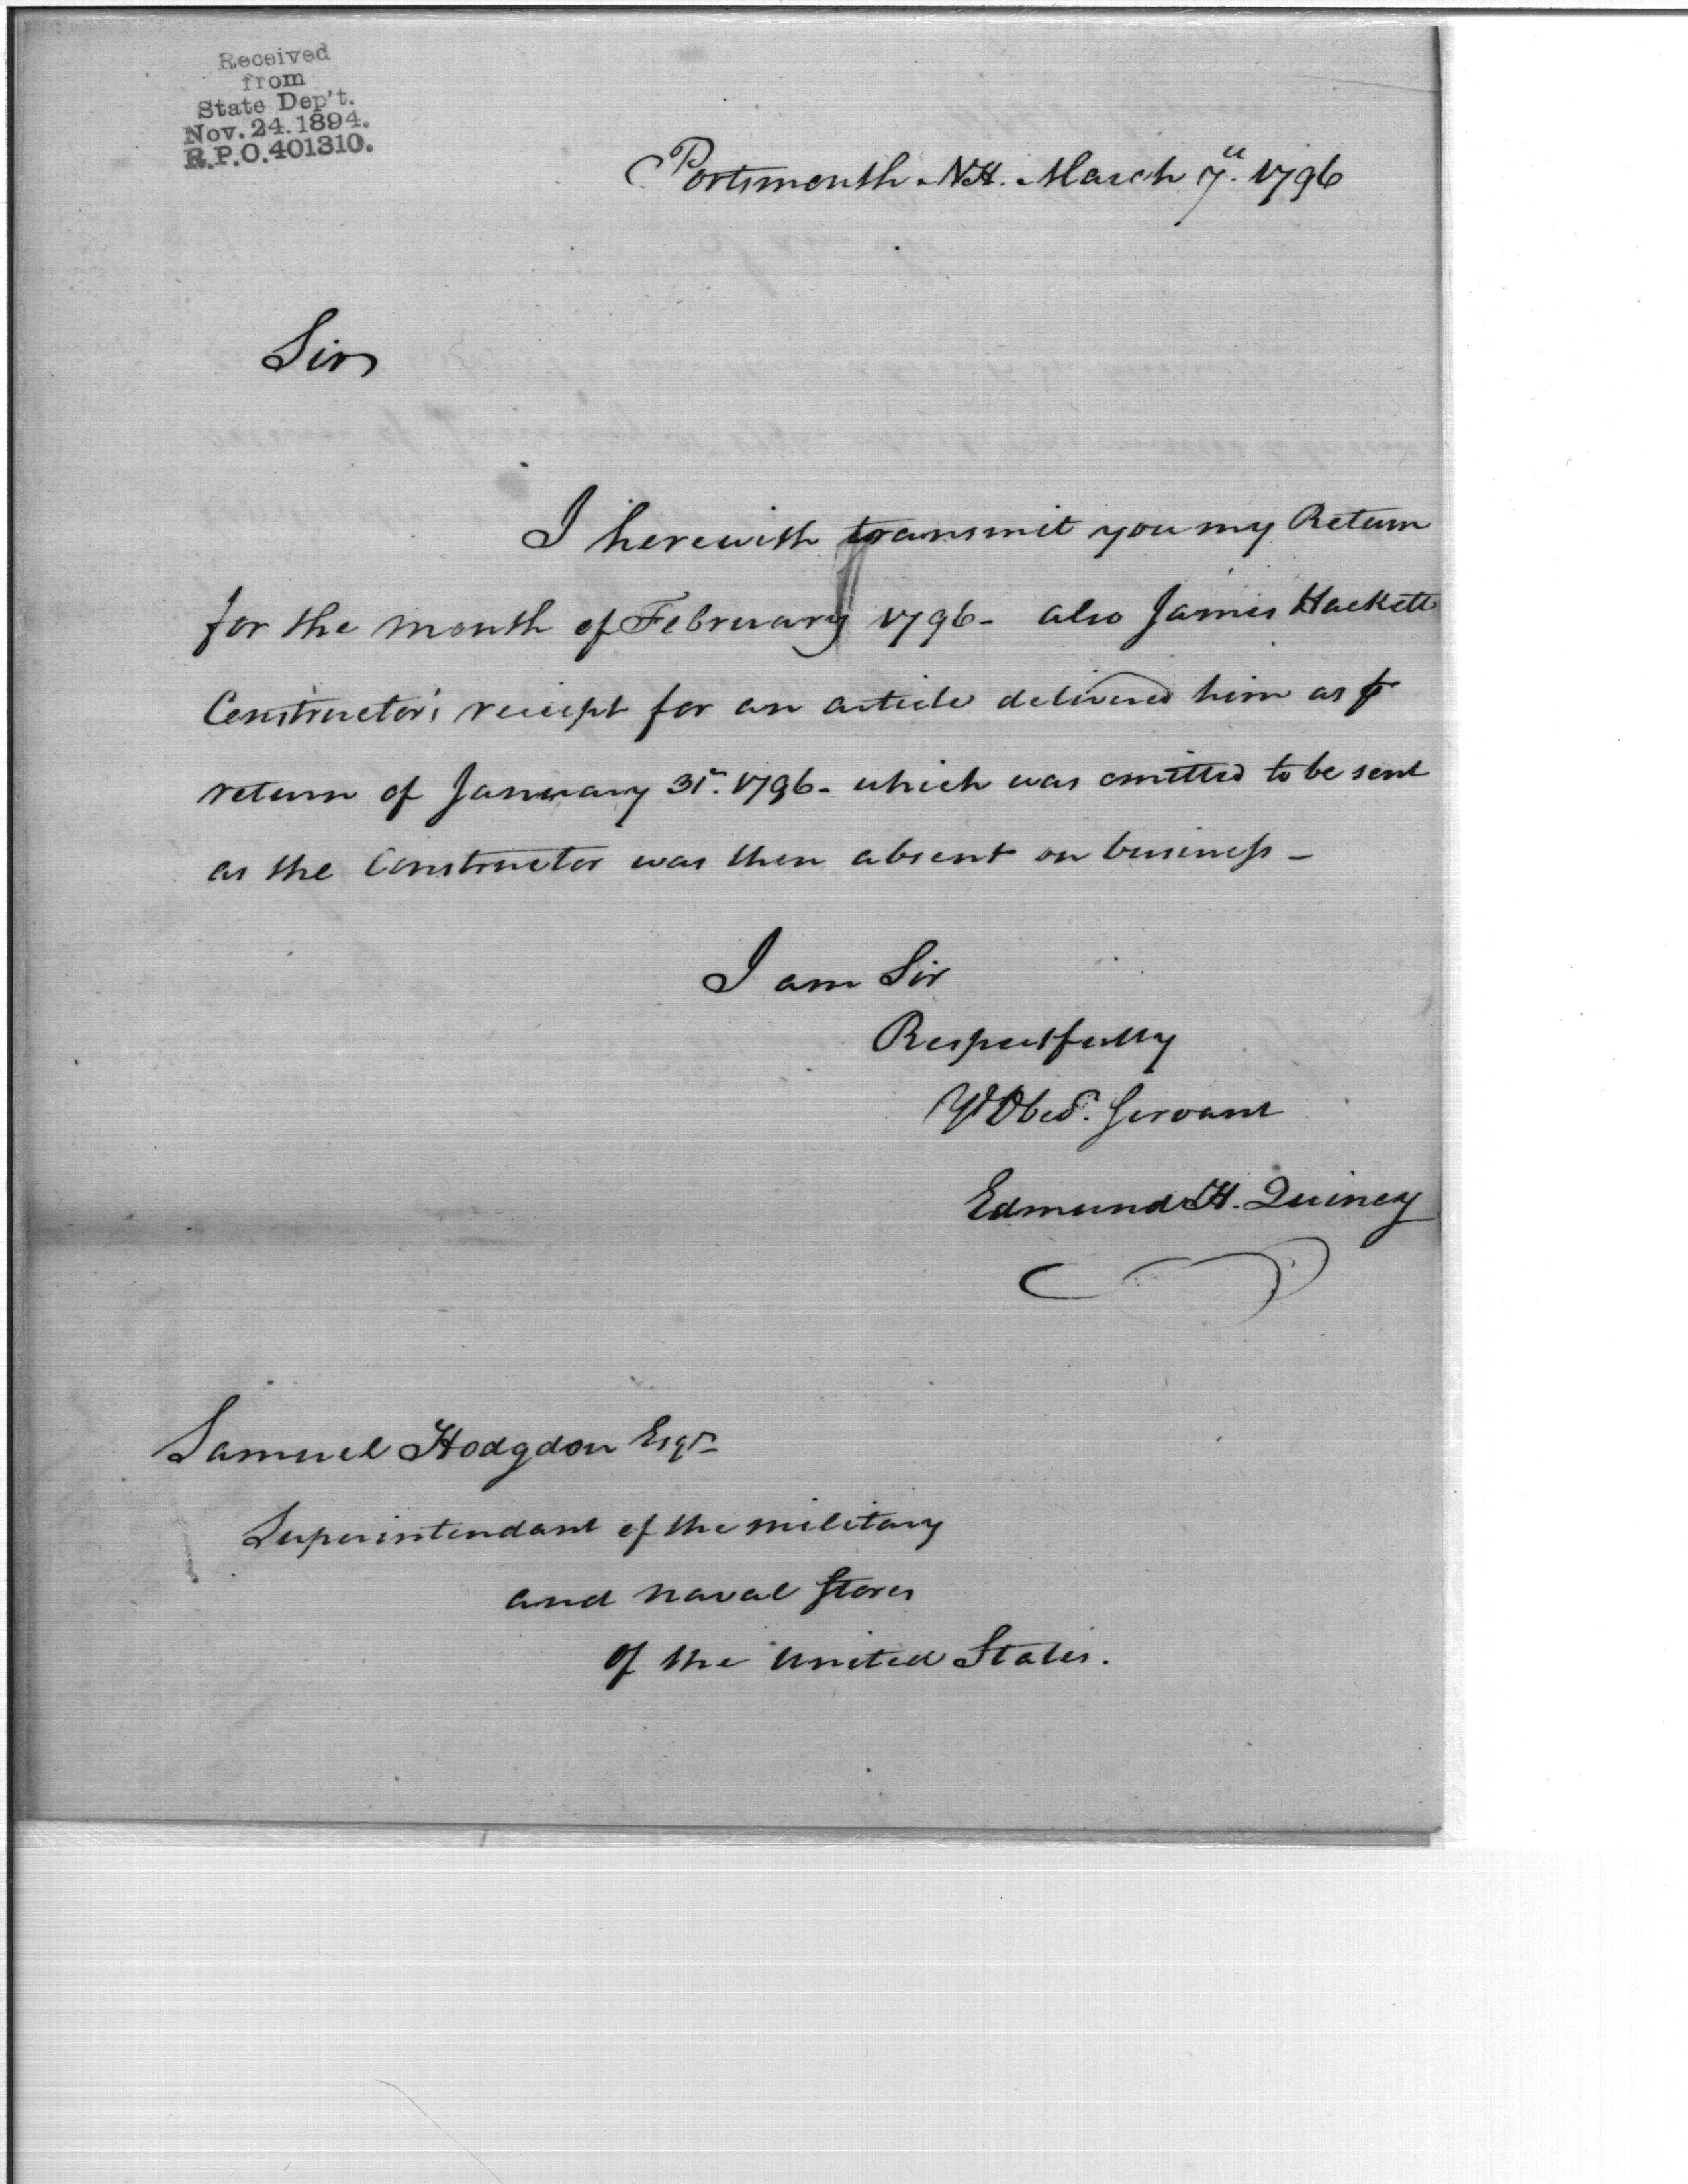 Received
from
State Dep't.
Nov. 24. 1894.
R.P.O. 401310.
Portsmouth NH. March 7th. 1796
Sir
I herewith transmit you my Return
for the month of February 1796 - also James Hackett
Constructor's receipt for an article delivered him as ⅌
return of January 31st. 1796 - which was omitted to be sent
as the Constructor was then absent on business -
I am Sir
Respectfully
Yr Obed. Servant
Edmund H. Quincy
Samuel Hodgdon Esqr
Superintendant of the military
and naval Stores
of the United States.